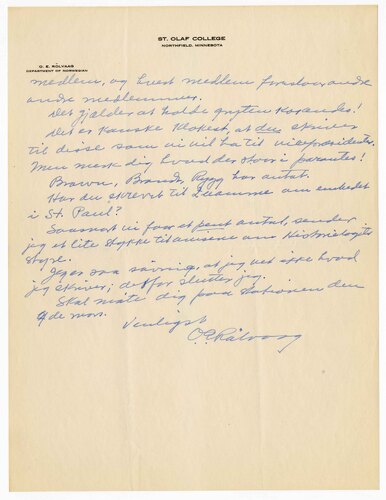 ST. OLAF COLLEGE
NORTHFIELD, MINNESOTA
O. E. RÖLVAAG
DEPARTMENT OF NORWEGIAN
medlem, og hvert medlem forslaar andre
andre medlemmer.
Det gjælder at holde gryten kokende!
Det er kanske klokest, at du skriver
til disse som vi vil ha til vicepræsidenter.
Men merk dig hvad der staar i parantes!
Brown, Brandt, Rygg har antat.
Har du skrevet til Laamme om embedet
i St. Paul?
Saasnart vi faar et pent antal, sender
jeg et lite stykke til avisene om Historielagets
styre.
Jeg er saa søvnig, at jeg vet ikke hvad
jeg skriver; derfor slutter jeg.
Skal møte dig paa stationen den
9de mars.
Venligst
O. E. Rölvaag